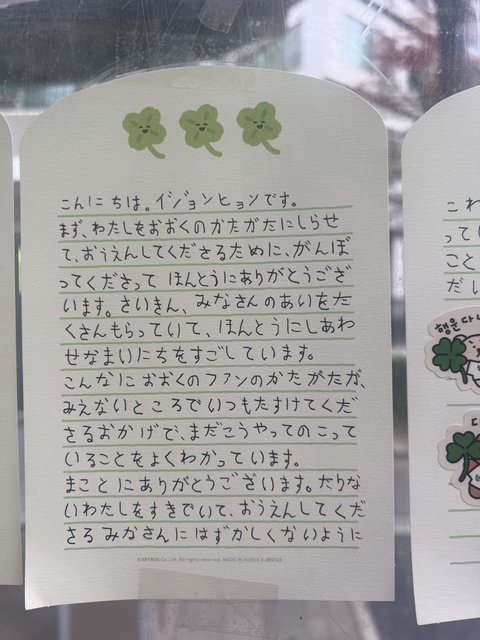 こんにちは。イジョンヒョンです。
まず、わたしをおおくのかたがたにしらせ
て、おうえんしてくださるために、がんば
ってくださって ほんとうにありがとうござ
います。さいきん、みなさんのあいをた
くさんもらっていて、ほんとうにしあわ
せなまいにちをすごしています。
こんなにおおくのファンのかたがたが、
みえないところでいつもたすけてくだ
さるおかげで、まだこうやってのこって
いることをよくわかっています。
まことにありがとうございます。たりな
いわたしをすきでいて、おうえんしてくだ
さるみなさんにはずかしくないように
©ARTBOX Co.,Ltd. All rights reserved. MADE IN KOREA
こわ
って
こと
だい
행운